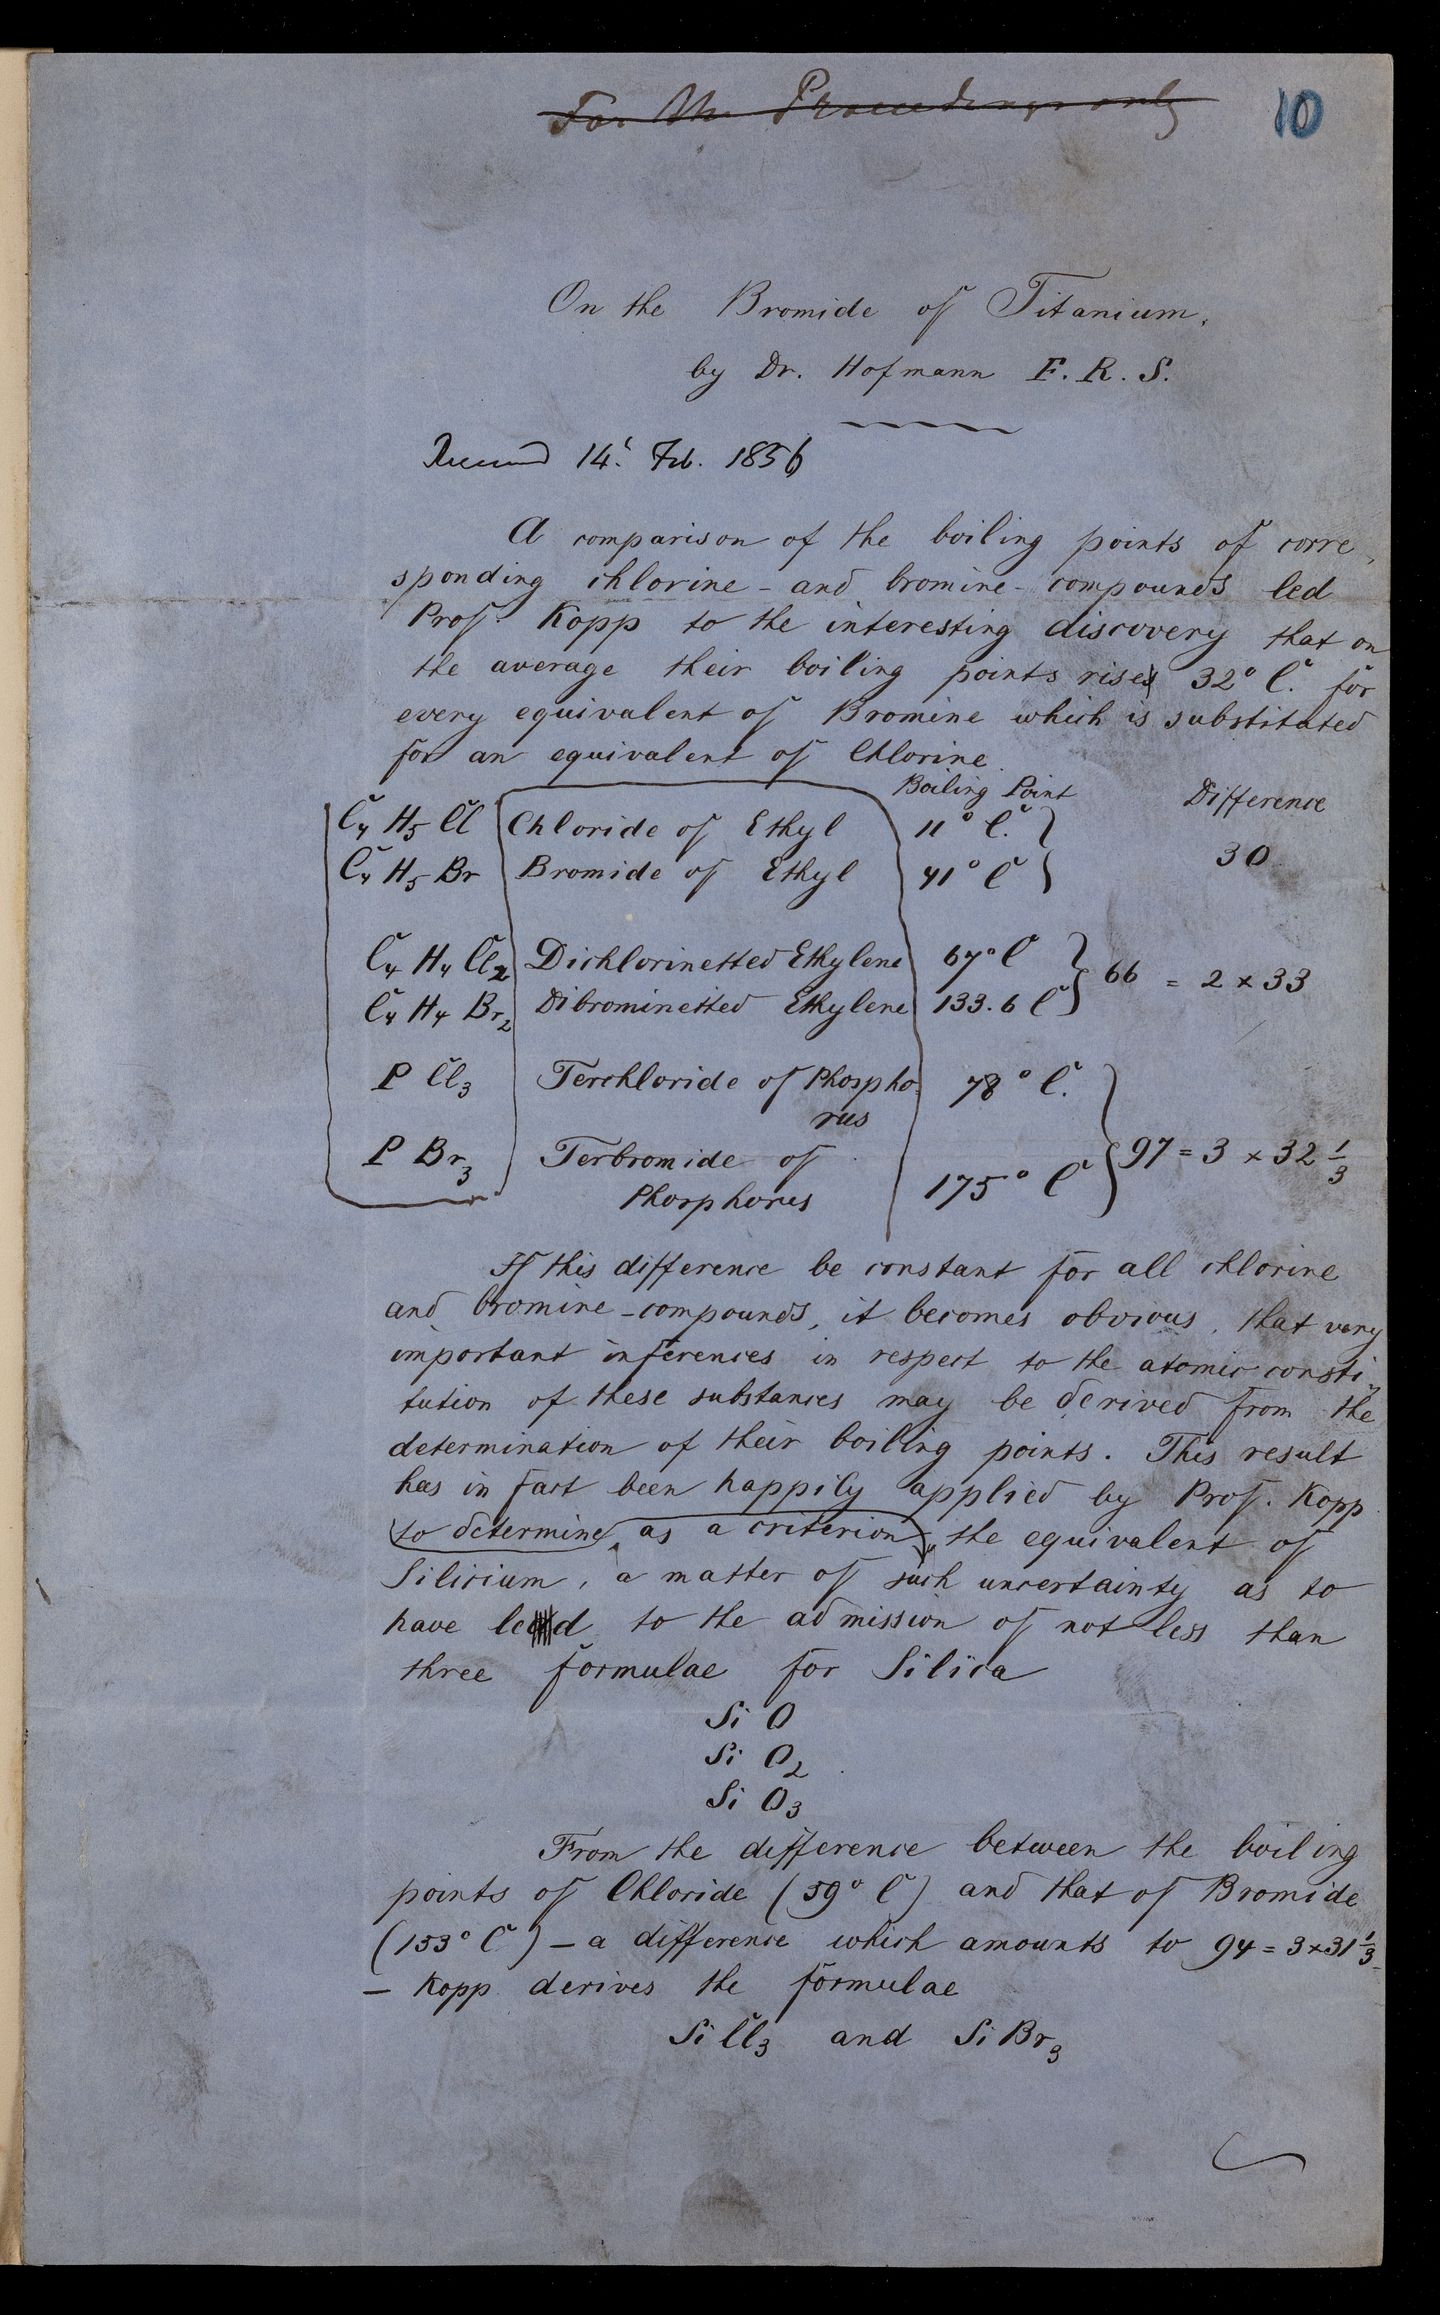 For the Proceedings only
10
On the Bromide of Titanium,
by Dr. Hofmann F. R. S.
Received 14. Feb. 1856
A comparison of the boiling points of corre-
sponding chlorine - and bromine - compounds led
Prof. Kopp to the interesting discovery that on
the average their boiling points rises 32° C. for
every equivalent of Bromine which is substituted
for an equivalent of Chlorine.
Boiling Point Difference
C4 H5 Cl Chloride of Ethyl 11° C.
C4 H5 Br Bromide of Ethyl 41° C 30
C4 H4 Cl2 Dichlorinetted Ethylene 67° C
C4 H4 Br2 Dibrominetted Ethylene 133.6 C 66 = 2 × 33
P Cl3 Terchloride of Phospho-
rus 78° C.
P Br3 Terbromide of
Phosphorus 175° C 97 = 3 × 32 1/3
If this difference be constant for all chlorine
and bromine - compounds, it becomes obvious, that very
important inferences in respect to the atomic consti-
tution of these substances may be derived from the
determination of their boiling points. This result
has in fact been happily applied by Prof. Kopp
to determine, as a criterion, the equivalent of
Silicium, a matter of such uncertainty as to
have led to the admission of not less than
three formulae for Silica
Si O
Si O2
Si O3
From the difference between the boiling
points of Chloride (59° C) and that of Bromide
(153° C) – a difference which amounts to 94 = 3 × 31 1/3
– Kopp derives the formulae
Si Cl3 and Si Br3